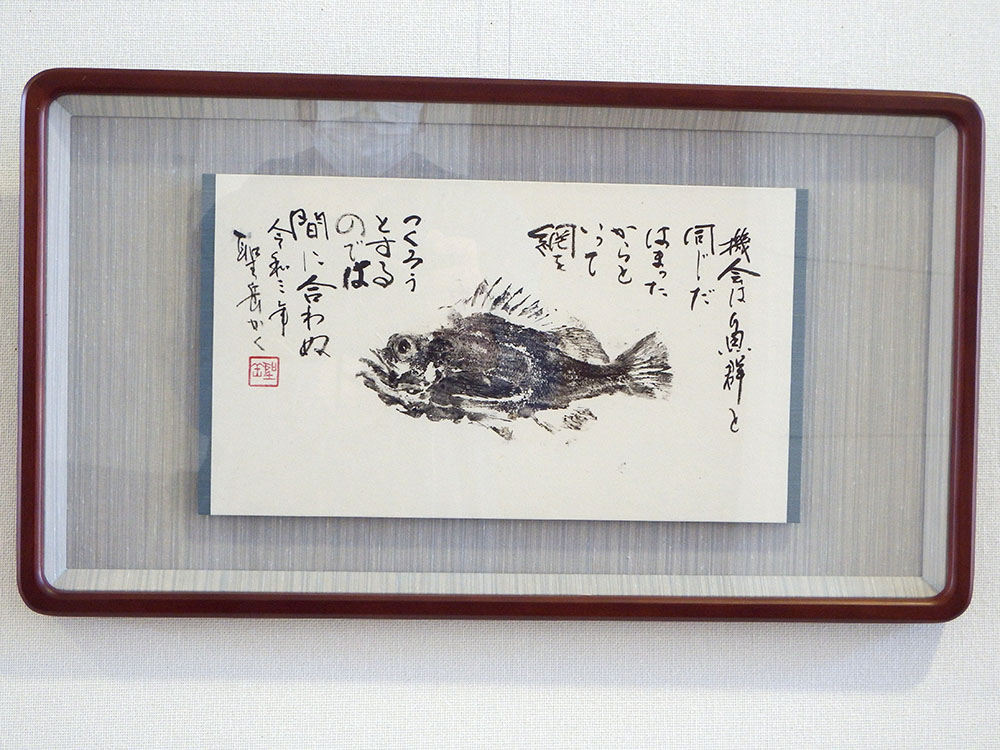 機会は魚群と
同じだ
はまった
からと
いって
網を
つくろう
とする
のでは
間に合わぬ
令和三年
聖岳かく